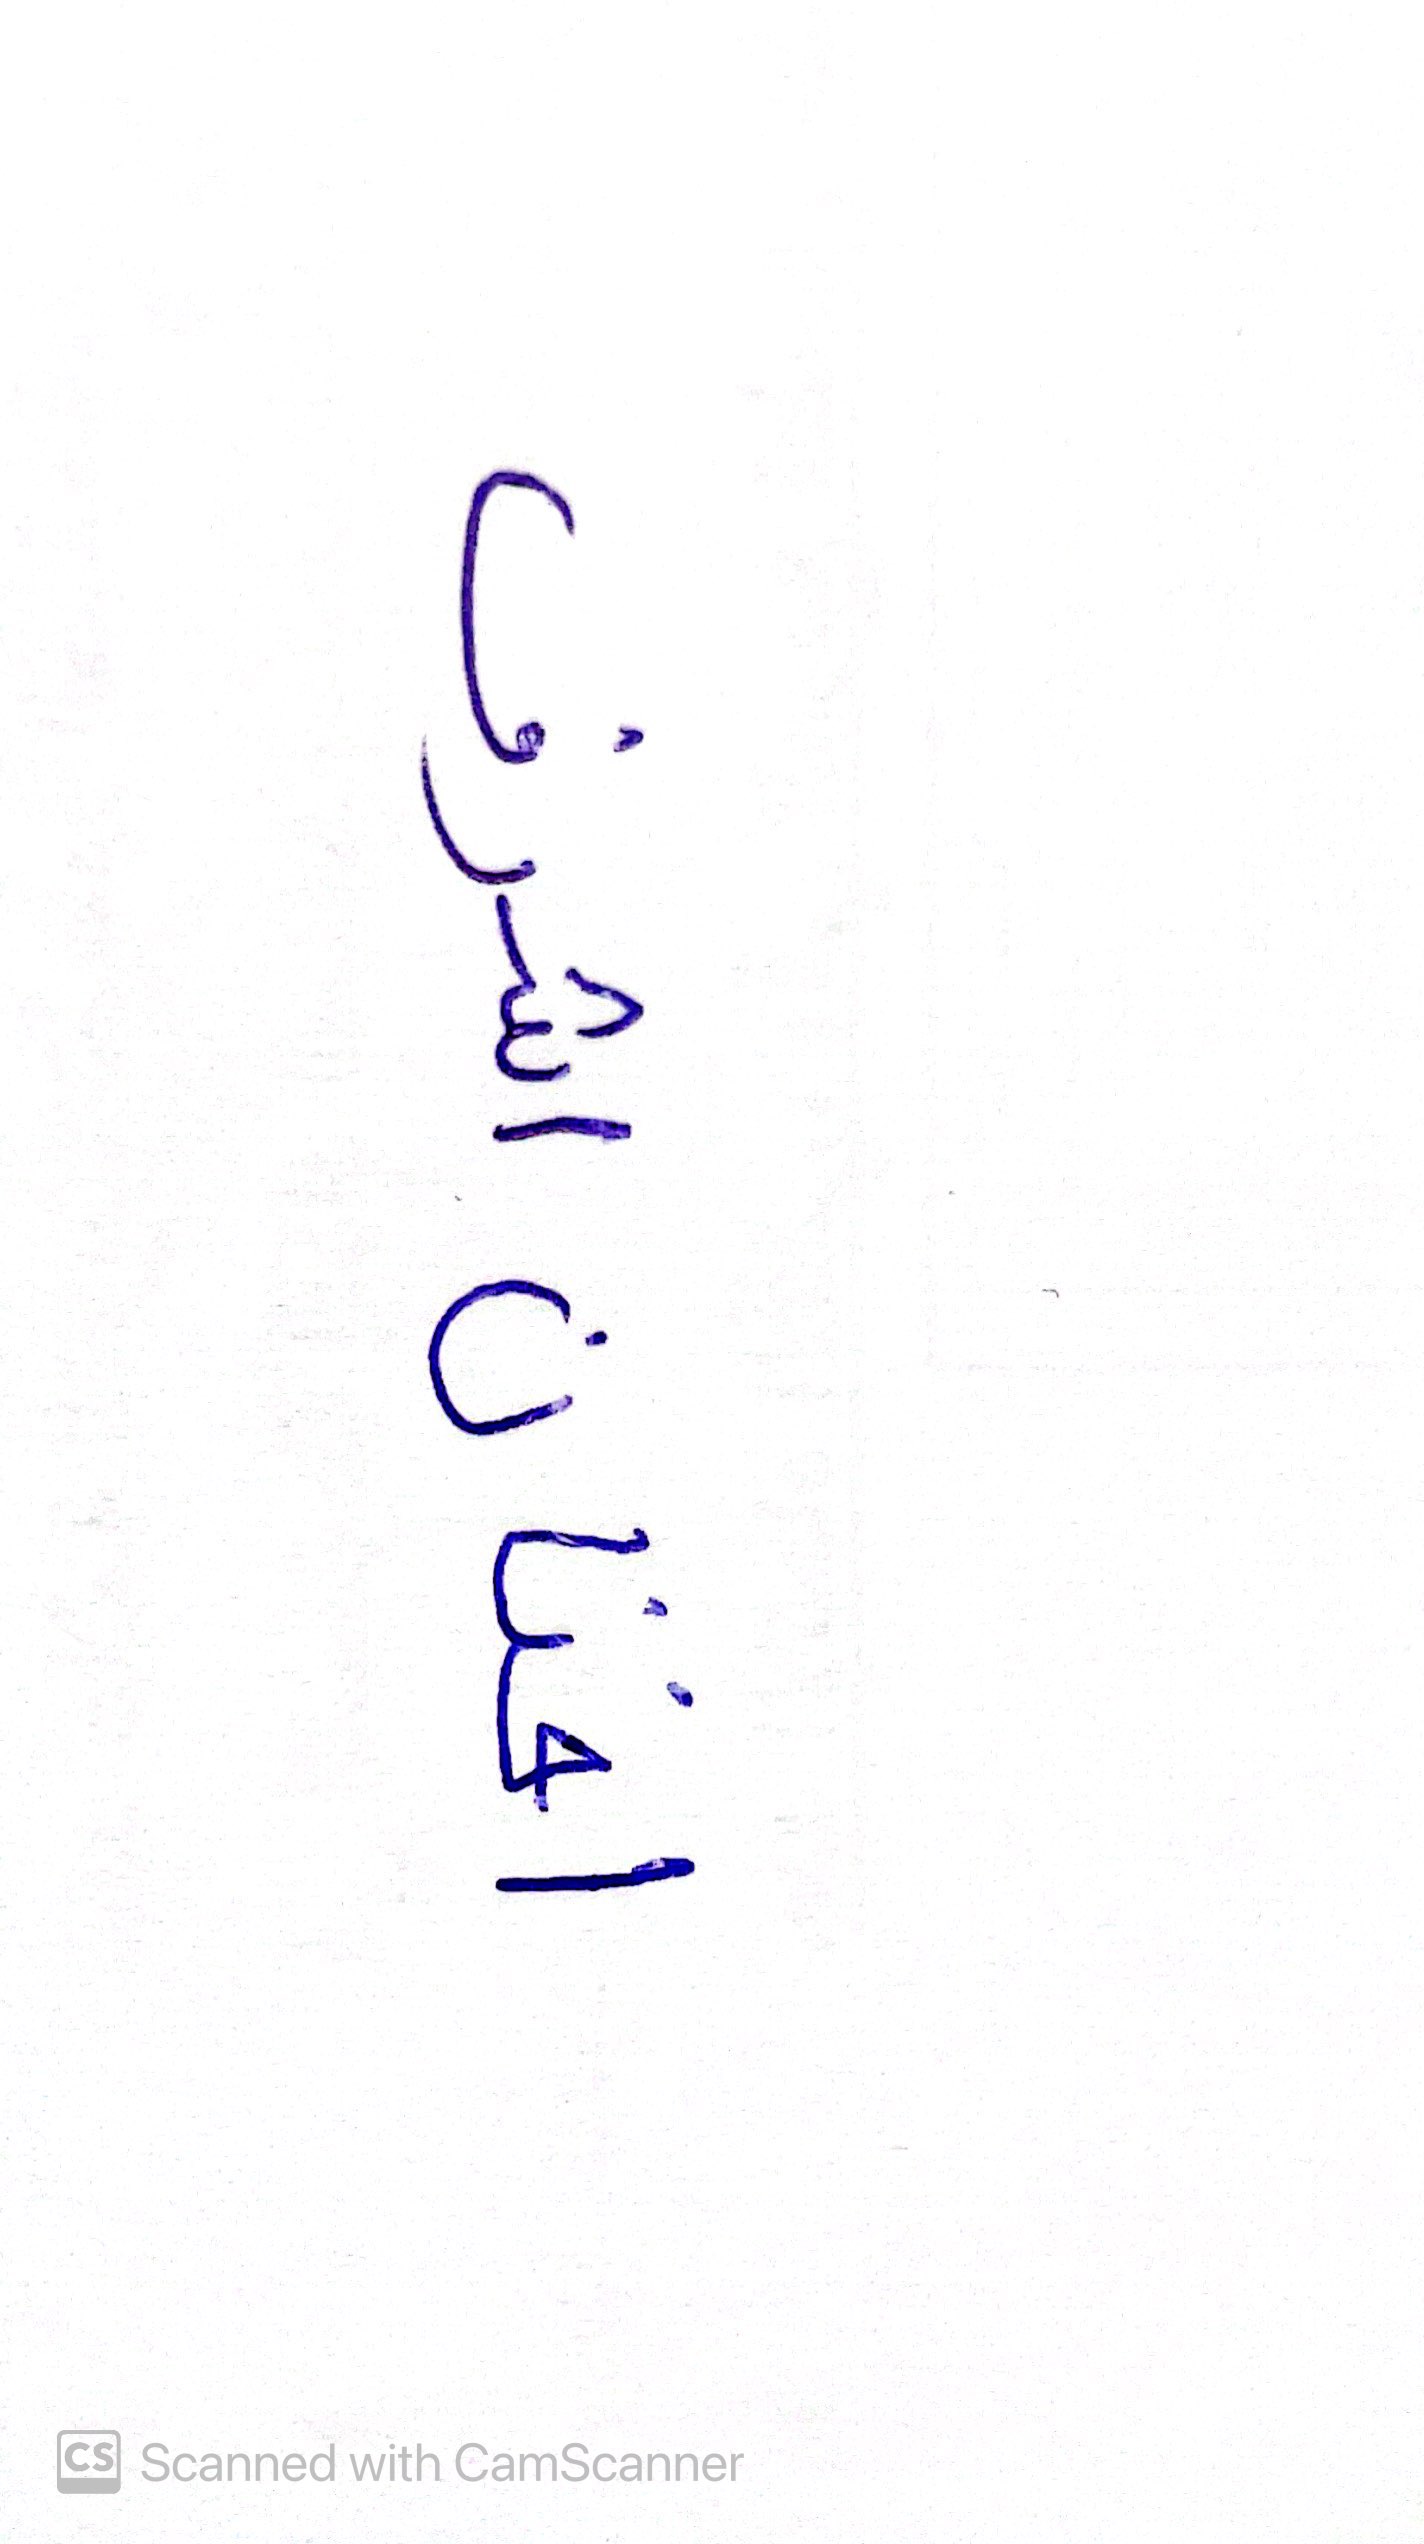 افنان اشرف
Scanned with CamScanner